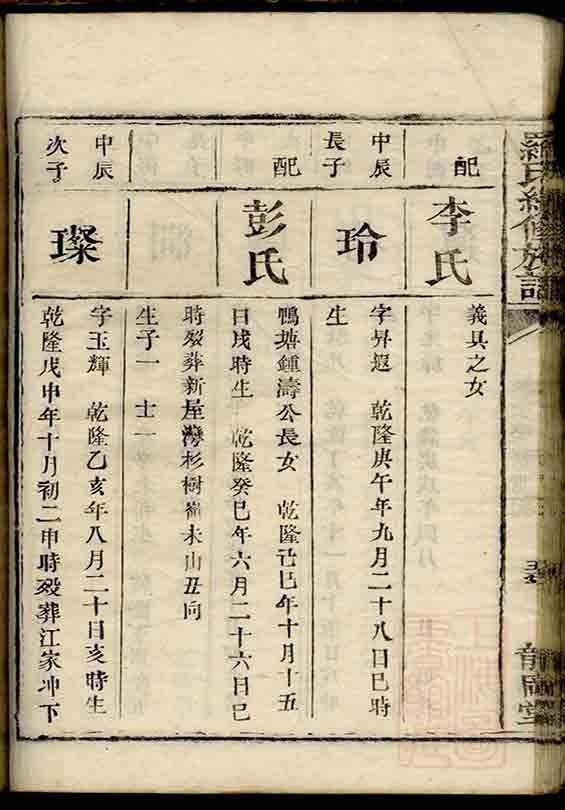 配
李氏
義具之女
中辰
長子
玲
字昇遐 乾隆庚午年九月二十八日巳時
生
配
彭氏
鴨塘鍾濤公長女 乾隆己巳年十月十五
日戌時生 乾隆癸巳年六月二十六日巳
時歿葬新屋灣杉樹崙未山丑向
生子一 士一
中辰
次子
璨
字玉輝 乾隆乙亥年八月二十日亥時生
乾隆戊申年十月初二申時歿葬江家冲下
羅氏續修族譜